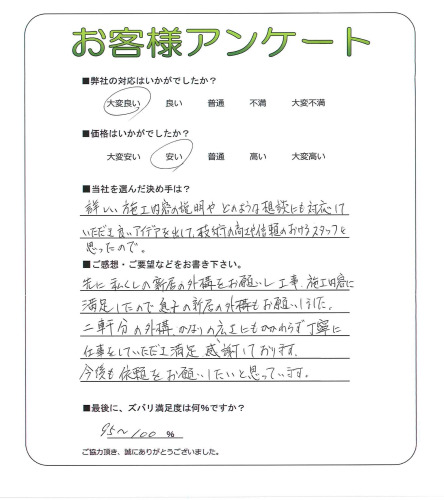 お客様アンケート
■弊社の対応はいかがでしたか?
大変良い 良い 普通 不満 大変不満
■価格はいかがでしたか?
大変安い 安い 普通 高い 大変高い
■当社を選んだ決め手は?
詳しい施工内容の説明やどのような相談にも対応して
いただき良いアイデアを出して、技術の高さや信頼のおけるスタッフと
思ったので。
■ご感想・ご要望などをお書き下さい。
先に私くしの新居の外構をお願いし工事、施工内容に
満足したので息子の新居の外構もお願いしました。
二軒分の外構、かなりの広さにもかかわらず丁寧に
仕事をしていただき満足、感謝しております。
今後も依頼をお願いしたいと思っています。
■最後に、ズバリ満足度は何%ですか?
95〜100 %
ご協力頂き、誠にありがとうございました。